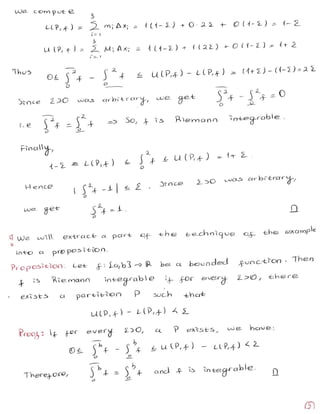 We compute
L(P,f) = 3∑i=1 mi Δxi = 1(1-ε) + 0·2ε + 0(1-ε) = 1-ε
U(P,f) = 3∑i=1 Mi Δxi = 1(1-ε) + 1(2ε) + 0(1-ε) = 1+ε
Thus 0 ≤ ∫₀² f - ∫₀² f ≤ U(P,f) - L(P,f) = (1+ε) - (1-ε) = 2ε
Since ε>0 was arbitrary, we get ∫₀² f - ∫₀² f = 0
i.e ∫₀² f = ∫₀² f => So, f is Riemann integrable.
Finally,
1-ε = L(P,f) ≤ ∫₀² f ≤ U(P,f) = 1+ε.
Hence |∫₀² f - 1| ≤ ε. Since ε>0 was arbitrary,
we get ∫₀² f = 1.
We will extract a part of the technique of the example
into a proposition.
Proposition: Let f: [a,b] → R be a bounded function. Then
f is Riemann integrable if for every ε>0, there
exists a partition P such that
U(P,f) - L(P,f) < ε
Proof: If for every ε>0, a P exists, we have:
0 ≤ ∫ᵇ f - ∫ᵇ f ≤ U(P,f) - L(P,f) < ε
Therefore, ∫ᵇ f = ∫ᵇ f and f is integrable.